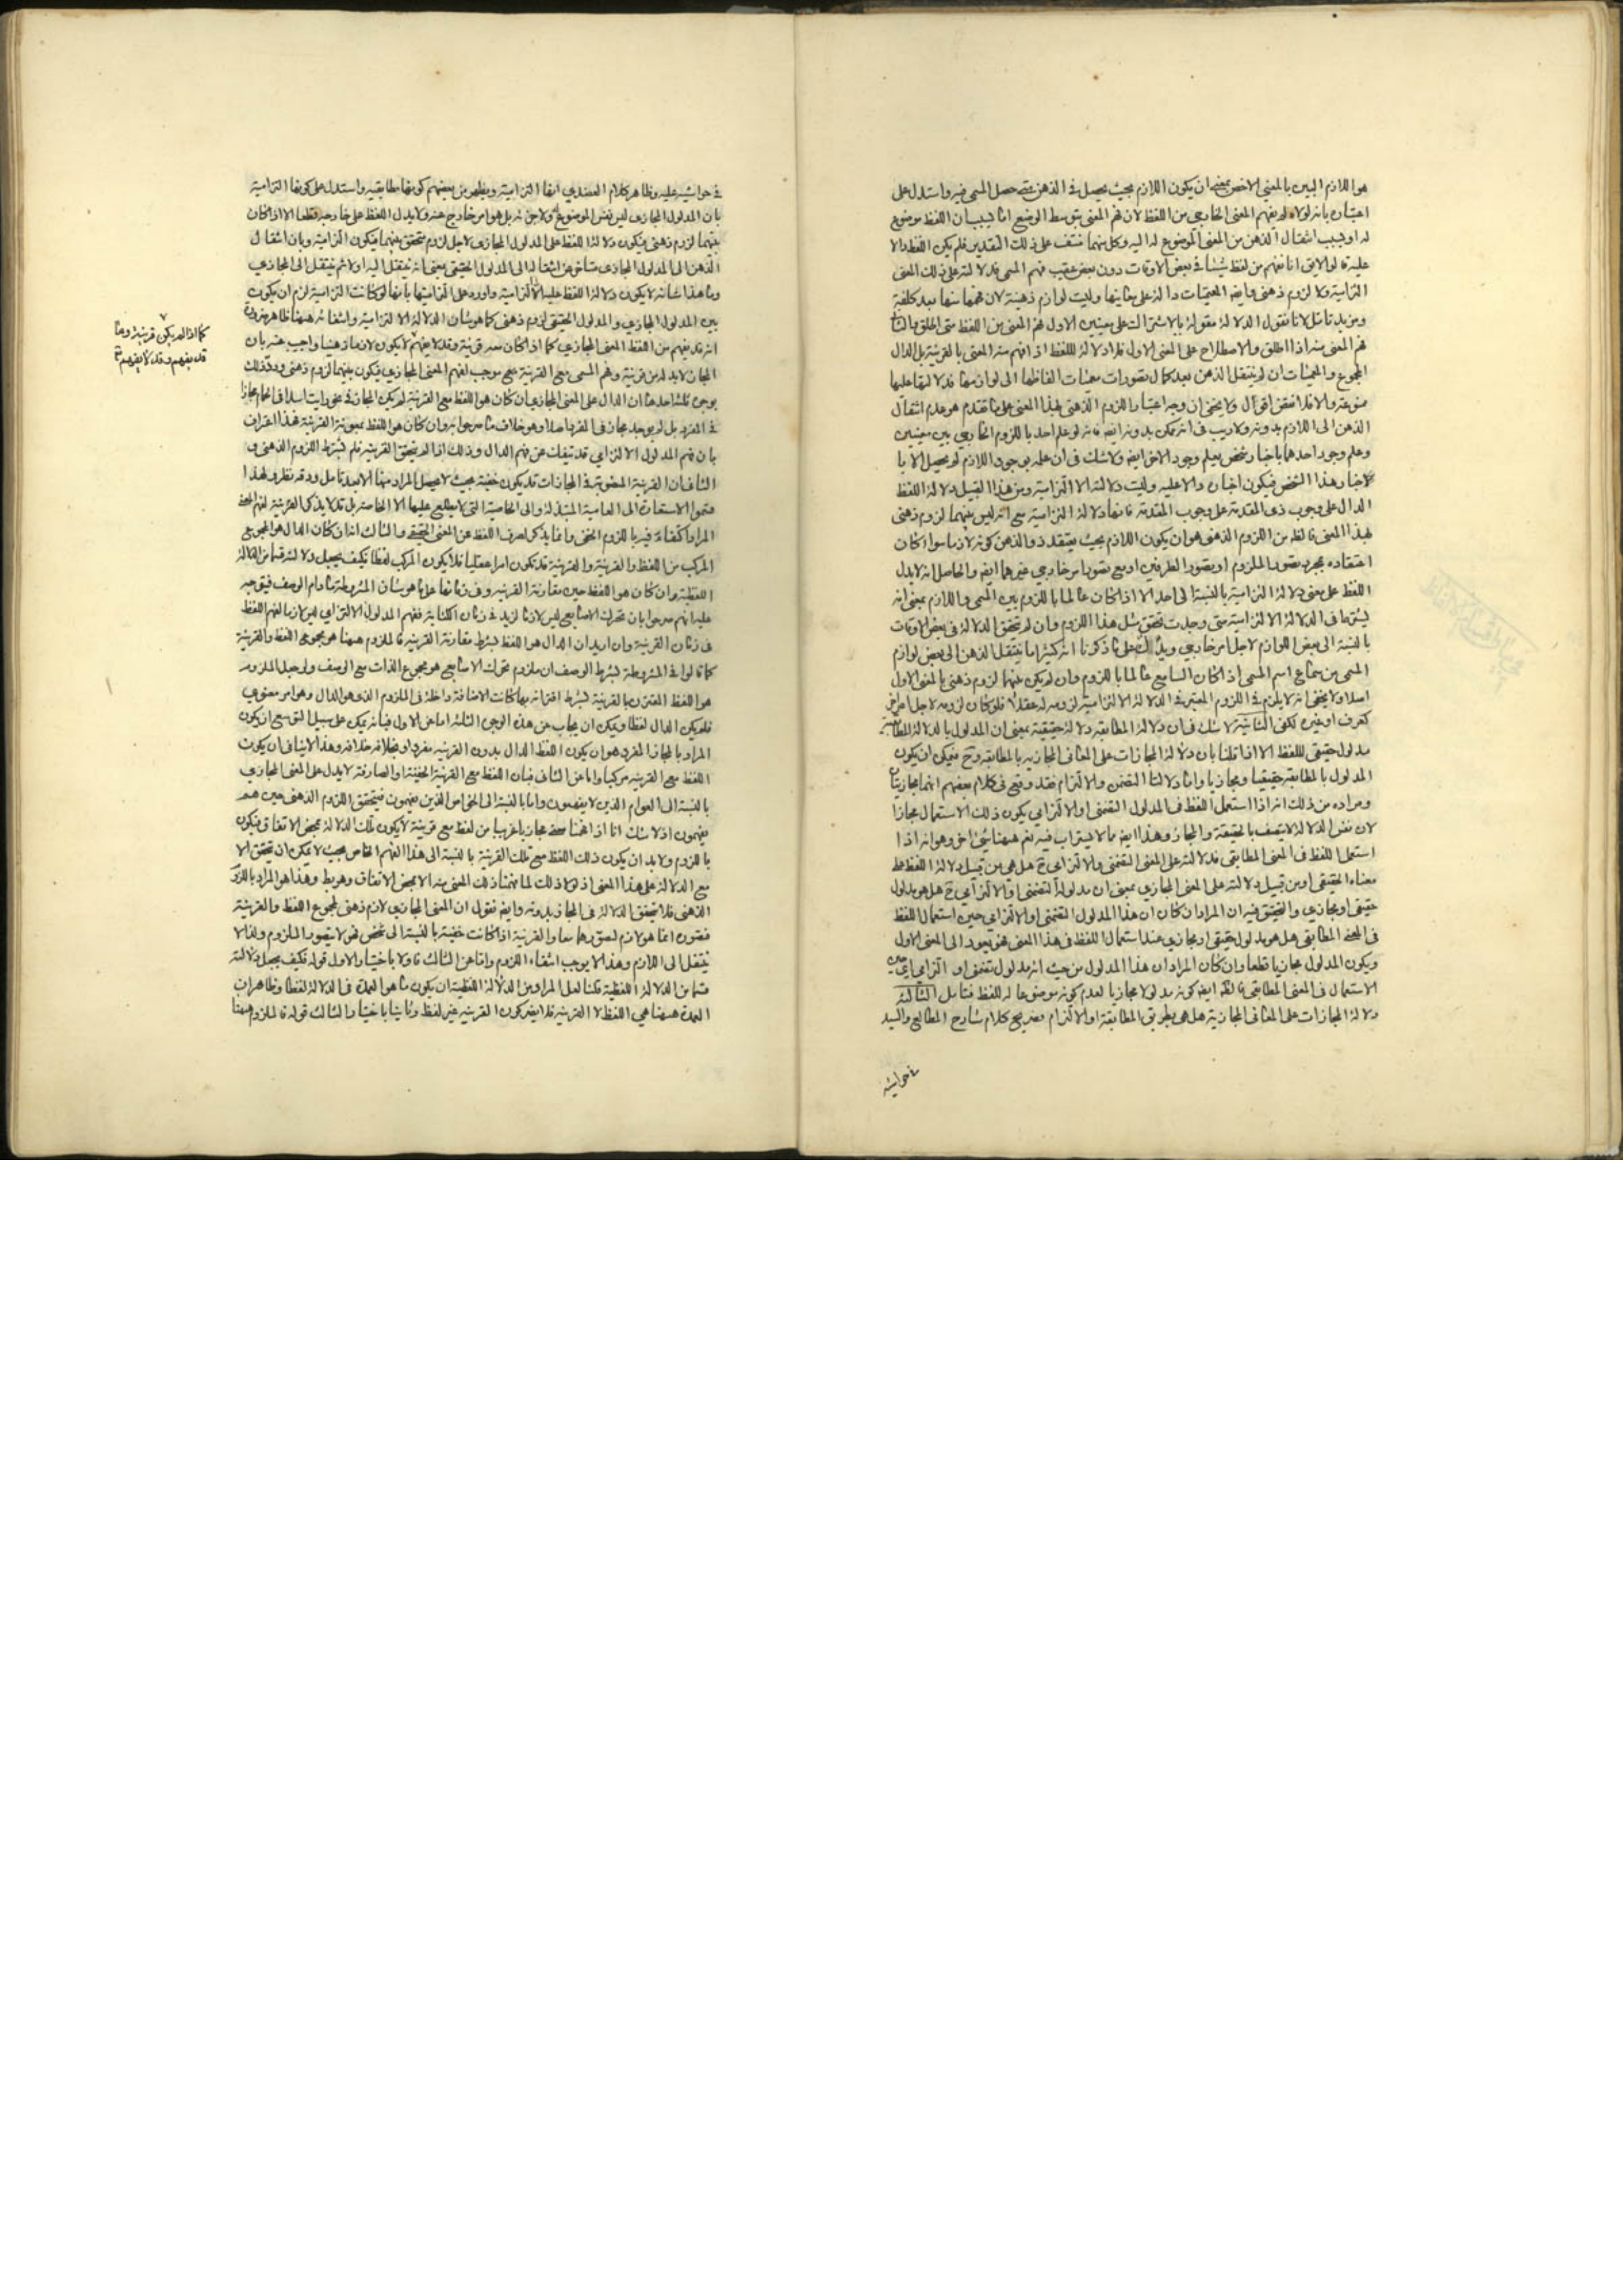 هو اللازم البين بالمعنى الاخص بمعنى ان يكون اللازم بحيث يحصل في الذهن متى حصل المسمى فيه واستدل على
اعتباره بانه لولاه لم يفهم المعنى الخارجي من اللفظ لان فهم المعنى بتوسط الوضع اما بسبب ان اللفظ موضوع
له او بسبب انتقال الذهن من المعنى الموضوع له اليه وكل منهما منتف على ذلك التقدير فلم يكن اللفظ دالا
عليه لا يق انا نفهم من لفظ شيئا في بعض الاوقات دون بعض عقيب فهم المسمى فدلالته على ذلك المعنى
التزامية ولا لزوم ذهني وايضا المعميات دالة على معانيها وليت لوازم ذهنية لان فهمها منها بعد كلفة
ومزيد تامل لانا نقول الدلالة مقولة بالاشتراك على معنيين الاول فهم المعنى من اللفظ متى اطلق والثا
فهم المعنى منه اذا اطلق والاصطلاح على المعنى الاول فلا دلالة للفظ اذا فهم منه المعنى بالقرينة بل الدال
المجموع والمعميات ان لم ينتقل الذهن بعد كمال تصورات معنيات الفاظها الى لوازمها فدلالتها عليها
ممنوعة والا فلا نقض اقول ولا يخفى ان وجه اعتبار اللزوم الذهني بهذا المعنى على ما تقدم هو عدم انتقال
الذهن الى اللازم بدونه ولا ريب في انه ممكن بدونه ايضا فانه لو علم احد باللزوم الخارجي بين معنيين
وعلم وجود احدهما باخبار شخص يعلم وجود الاخر ايضا ولا شك في ان علمه بوجود اللازم لم يحصل الا با
لاخبار هذا الشخص فيكون اخباره دالا عليه وليت دلالته الا التزامية ومن هذا القبيل دلالة اللفظ
الدال على وجوب ذي المقدمة على وجوب المقدمة فانها دلالة التزامية مع انه ليس بينهما لزوم ذهني
بهذا المعنى فالظ من اللزوم الذهني هو ان يكون اللازم بحيث يعتقد ذو الذهن كونه لازما سواء كان
اعتقاده بمجرد تصور الملزوم او بتصور الطرفين او مع تصور امر خارجي غيرهما ايضا والحاصل انه لا يدل
اللفظ على معنى دلالة التزامية بالنسبة الى احد الا اذا كان عالما باللزوم بين المسمى واللازم بمعنى انه
يشترط في الدلالة الالتزامية متى وجدت تحقق مثل هذا اللزوم وان لم تتحقق الدلالة في بعض الاوقات
بالنسبة الى بعض اللوازم لاجل امر خارجي ويدلك على ما ذكرنا انه كثيرا ما ينتقل الذهن الى بعض لوازم
المسمى من سماع اسم المسمى اذا كان السامع عالما باللزوم وان لم يكن بينهما لزوم ذهني بالمعنى الاول
اصلا ولا يخفى انه لا يلزم في اللزوم المعتبر في الدلالة الالتزامية لزومه له عقلا فلو كان لزومه لاجل امر اخر
كعرف او غيره لكفى الثانية لا شك في ان دلالة المطابقة دلالة حقيقية بمعنى ان المدلول بالدلالة المطابقية
مدلول حقيقي للفظ الا اذا قلنا بان دلالة المجازات على المعاني المجازية بالمطابقة وح فيمكن ان يكون
المدلول بالمطابقة حقيقيا ومجازيا واما دلالتا التضمن والالتزام فقد وقع في كلام بعضهم انهما مجازيتان
ومراده من ذلك انه اذا استعمل اللفظ في المدلول التضمني او الالتزامي يكون ذلك الاستعمال مجازا
لان نفس الدلالة لا يتصف بالحقيقة والمجاز وهذا ايضا مما لا يستراب فيه نعم ههنا شيء اخر وهو انه اذا
استعمل اللفظ في المعنى المطابقي فدلالته على المعنى التضمني والالتزامي ح هل هي من قبيل دلالة اللفظ على
معناه الحقيقي او من قبيل دلالته على المعنى المجازي بمعنى ان مدلوله التضمني او الالتزامي ح هل هو مدلول
حقيقي او مجازي والتحقيق فيه ان المراد ان كان ان هذا المدلول التضمني او الالتزامي حين استعمال اللفظ
في المعنى المطابقي هل هو مدلول حقيقي او مجازي عند استعمال اللفظ في هذا المعنى فهو يعود الى المعنى الاول
ويكون المدلول مجازيا قطعا وان كان المراد ان هذا المدلول من حيث انه مدلول تضمني او التزامي اي حين
الاستعمال في المعنى المطابقي فالظ ايضا كونه مدلولا مجازيا لعدم كونه موضوعا له للفظ فتامل الثالثة
دلالة المجازات على المعاني المجازية هل هي بطريق المطابقة او الالتزام صريح كلام شارح المطالع والسيد
في حواشيه
في حواشيه عليه وظاهر كلام العضدي انها التزامية ويظهر من بعضهم كونها مطابقية واستدل على كونها التزامية
بان المدلول المجازي ليس نفس الموضوع له ولا جزءه بل هو امر خارج عنه ولا يدل اللفظ على خارجه قطعا الا اذا كان
بينهما لزوم ذهني فيكون دلالة اللفظ على المدلول المجازي لاجل لزوم متحقق بينهما فيكون التزامية وبان انتقال
الذهن الى المدلول المجازي متاخر عن انتقاله الى المدلول الحقيقي بمعنى انه ينتقل اليه اولا ثم ينتقل الى المجازي
وما هذا شانه لا يكون دلالة اللفظ عليه الا التزامية واورد على التزاميتها بانها لو كانت التزامية لزم ان يكون
بين المدلول المجازي والمدلول الحقيقي لزوم ذهني كما هو شان الدلالة الالتزامية وانتفائه ههنا ظاهر ضرورة
انه قد يفهم من اللفظ المعنى المجازي كما اذا كان معه قرينة وقد لا يفهم لا يكون لازما ذهنيا واجيب عنه بان
المجاز لا بد له من قرينة وفهم المسمى مع القرينة مع موجب لفهم المعنى المجازي فيكون بينهما لزوم ذهني ورد ذلك
بوجوه ثلثة احدها ان الدال على المعنى المجازي ان كان هو اللفظ مع القرينة لم يكن المجاز في نحو رايت اسدا في الحمام مجازا
في المفرد بل لم يوجد مجاز في المفرد اصلا وهو خلاف ما صرحوا به وان كان هو اللفظ بمعونة القرينة فهذا اعتراف
بان فهم المدلول الالتزامي قد تنفك عن فهم الدال وذلك اذا لم يتحقق القرينة فلم يشترط اللزوم الذهني و
الثاني ان القرينة المنصوبة في المجازات قد يكون خفية بحيث لا يحصل المراد منها الا بعد تامل ودقة نظر ولهذا
قسموا الاستعارة الى العامية المبتذلة والى الخاصية التي لا يطلع عليها الا الخاصة بل قد لا يذكر القرينة لفهم المعنى
المراد اكتفاء فيه باللزوم الخفي وانما يذكر لصرف اللفظ عن المعنى الحقيقي والثالث انه ان كان الدال هو المجموع
المركب من اللفظ والقرينة والقرينة قد تكون امرا عقليا فلا يكون المركب لفظا فكيف يجعل دلالته قسما من الدلالة
اللفظية وان كان هو اللفظ حين مقارنة القرينة وفي زمانها على ما هو شان المشروطة ما دام الوصف فيتوجه
عليه انهم صرحوا بان تحرك الاصابع ليس لازما لزيد في زمان الكتابة ففهم المدلول الالتزامي ليس لازما لفهم اللفظ
في زمان القرينة وان اريد ان الدال هو اللفظ بشرط مقارنة القرينة فالملزوم ههنا هو مجموع اللفظ والقرينة
كما قالوا في المشروطة بشرط الوصف ان ملزوم تحرك الاصابع هو مجموع الذات مع الوصف ولو جعل الملزوم
هو اللفظ المقترن بالقرينة بشرط اقترانه بها كانت الاضافة داخلة في الملزوم الذي هو الدال وهو امر معنوي
فلم يكن الدال لفظا ويمكن ان يجاب عن هذه الوجوه الثلثة اما عن الاول فبانه يمكن على سبيل التوسع ان يكون
المراد بالمجاز المفرد هو ان يكون اللفظ الدال بدون القرينة مفردا وبخلافه خلافه وهذا لا ينافي ان يكون
اللفظ مع القرينة مركبا واما عن الثاني فبان اللفظ مع القرينة الخفية او الصارفة لا يدل على المعنى المجازي
بالنسبة الى العوام الذين لا يفهمون واما بالنسبة الى الخواص الذين يفهمون فيتحقق اللزوم الذهني حين هم
يفهمون اذ لا شك انا اذا فهمنا معنى مجازيا غريبا من لفظ مع قرينة لا يكون تلك الدلالة بمحض الاتفاق فيكون
باللزوم ولا بد ان يكون ذلك اللفظ مع تلك القرينة بالنسبة الى هذا الفهم الخاص بحيث لا يمكن ان يتحقق الا
مع الدلالة على هذا المعنى اذ لولا ذلك لما فهمنا ذلك المعنى منه الا بمحض الاتفاق وهو بط وهذا هو المراد باللزوم
الذهني فلا يتحقق الدلالة في المجاز بدونه وايضا نقول ان المعنى المجازي لازم ذهني لمجموع اللفظ والقرينة
فتصوره انما هو لازم لتصورهما معا والقرينة اذا كانت خفية بالنسبة الى شخص فهو لا يتصور الملزوم ولذا لا
ينتقل الى اللازم وهذا لا يوجب انتفاء اللزوم واما عن الثالث فاولا باختيار الاول قوله فكيف يجعل دلالته
قسما من الدلالة اللفظية قلنا لعل المراد من الدلالة اللفظية ان يكون ما هو العمدة في الدلالة لفظا وظاهر ان
العمدة ههنا هي اللفظ لا القرينة فلا يضر كون القرينة غير لفظ وثانيا باختيار الثالث قوله فالملزوم ههنا
كما اذا لم يكن قرينة وما
قد يفهم وقد لا يفهم